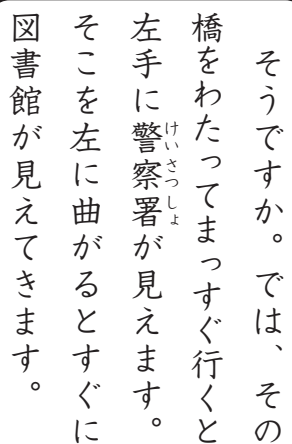 そうですか。では、その
橋をわたってまっすぐ行くと
左手に警察署が見えます。
そこを左に曲がるとすぐに
図書館が見えてきます。
けいさつしょ